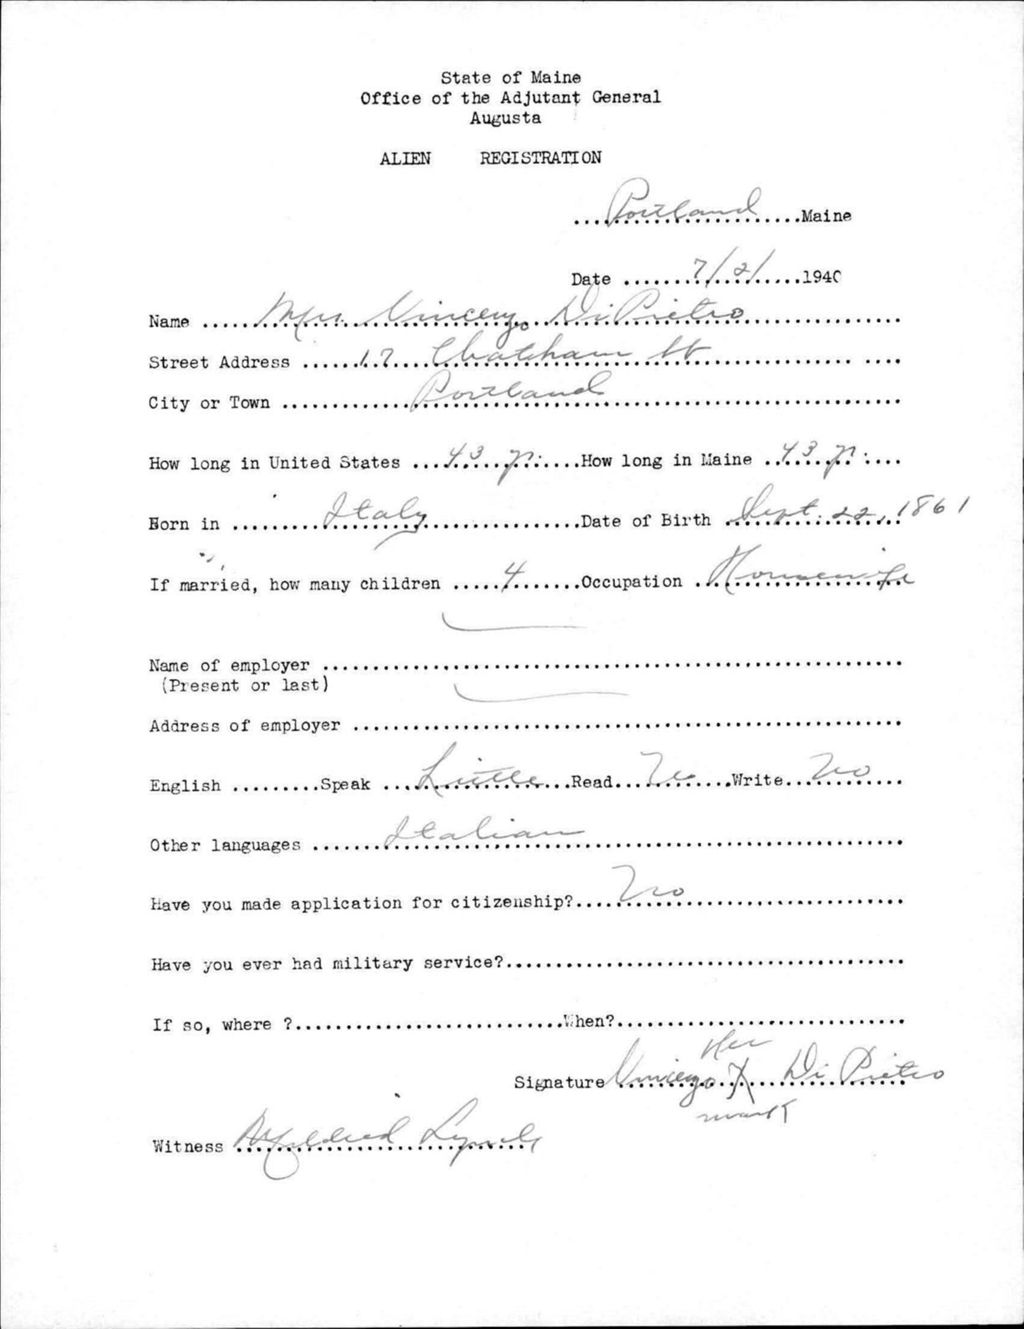 State of Maine
Office of the Adjutant General
Augusta
ALIEN REGISTRATION
....Portland....Maine
Date ....7/2/....1940
Name ....Mrs. Vincenzo DiPietro....
Street Address ....17 Chatham St....
City or Town ....Portland....
How long in United States ....43 yr.....How long in Maine ....43 yr.....
Born in ....Italy....Date of Birth ....Sept. 22, 1861
If married, how many children ....4....Occupation ....Housewife
Name of employer ....
(Present or last)
Address of employer ....
English ....Speak ....Little....Read....No....Write....No....
Other languages ....Italian....
Have you made application for citizenship?....No....
Have you ever had military service?....
If so, where ?....When?....
Her
Signature Vincenzo X Di Pietro
mark
Witness Mildred Lynch